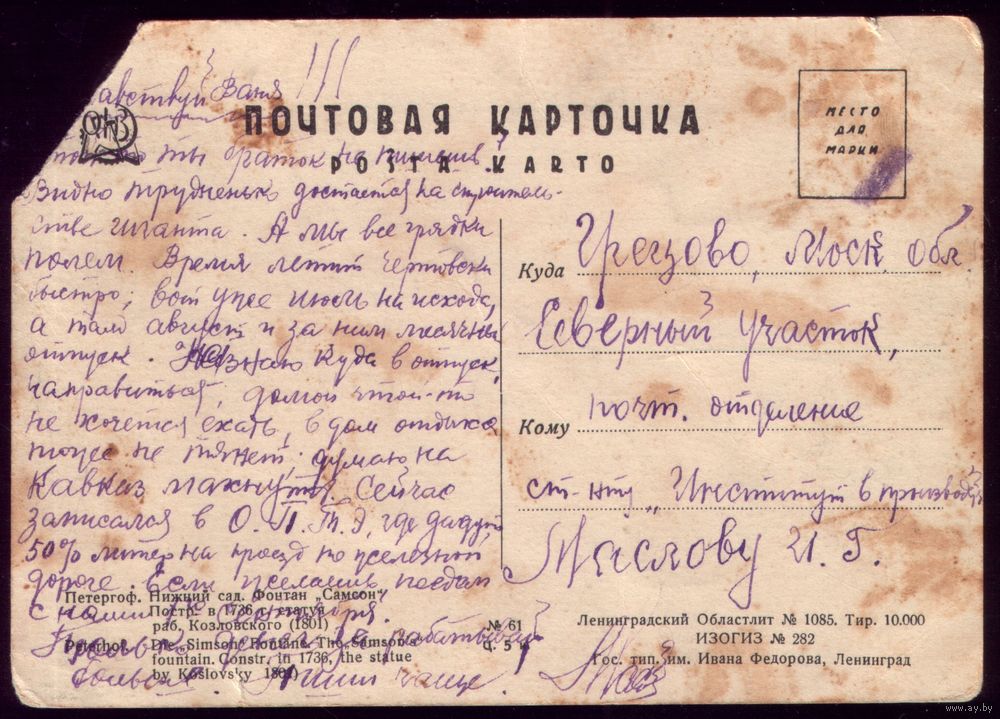 авствуй Ваня !!!
ПОЧТОВАЯ КАРТОЧКА
POSTA KARTO
МЕСТО
ДЛЯ
МАРКИ
ты браток не пишешь?
Видно трудненько достается на строитель-
стве гиганта. А мы все грядки
полем. Время летит чертовски
быстро; вот уже июль на исходе,
а там август и за ним месячный
отпуск. Не знаю куда в отпуск
направиться, домой что-то
не хочется ехать, в дом отдыха
тоже не тянет. думаю на
Кавказ махнуть. Сейчас
записался в О.П.Т.Э, где дадут
50% литер на проезд по железной
дороге. Если желаешь поедем
с нами
Пиши чаще
Куда Грецово, Моск. обл.
Северный участок,
Кому почт. отделение
ст-нту "Институт в производ."
Маслову И. Г.
Петергоф. Нижний сад. Фонтан „Самсон“
Постр. в 1736 г., статуя
раб. Козловского (1801)
Peterhof. The „Simson“ Fontane. The Samson's
fountain. Constr. in 1736, the statue
by Koslovs'ky 1801)
№ 61
ч. 5 к.
Ленинградский Областлит № 1085. Тир. 10.000
ИЗОГИЗ № 282
Гос. тип. им. Ивана Федорова, Ленинград
www.ay.by